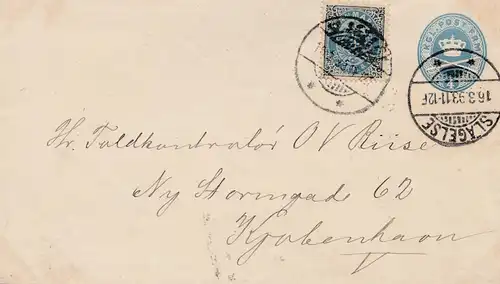 KGL·POST·FRM
SLAGELSE
16.3.93.11-12F
Hr. Toldkontrolör O V Riise
Ny Stormgade 62
Kjøbenhavn
V